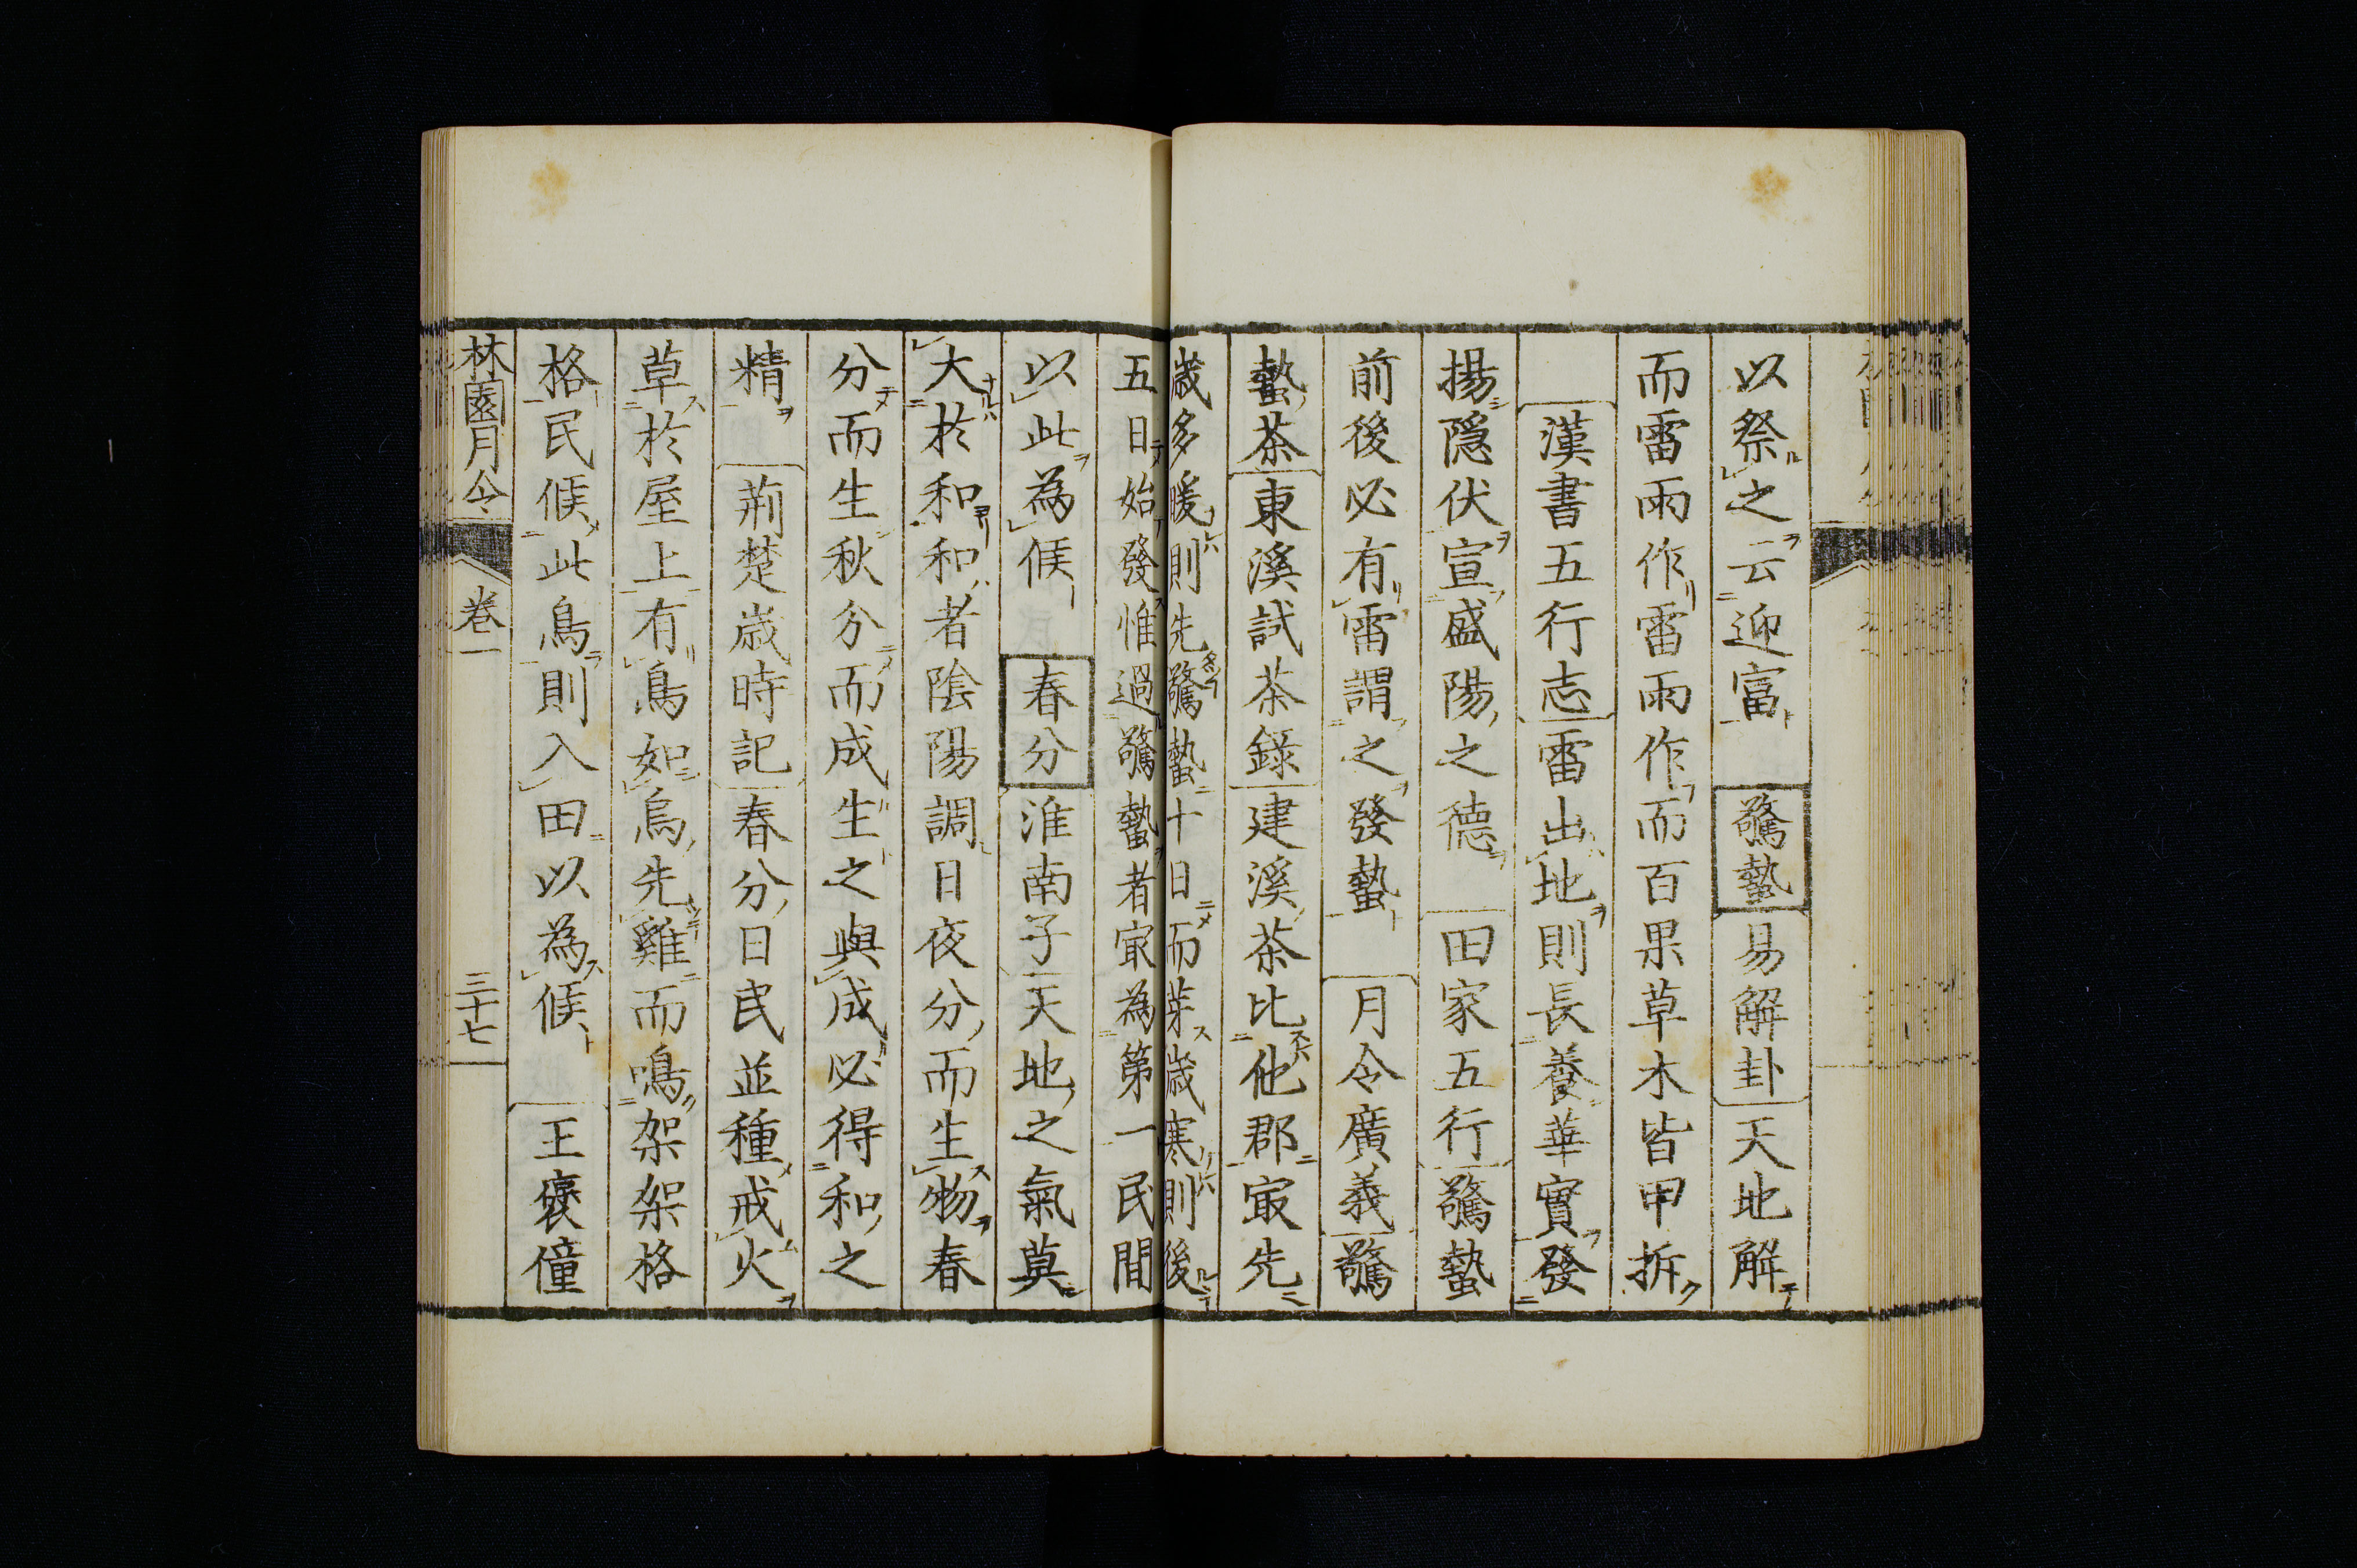 以祭之云迎富 驚蟄易解卦天地解
而雷雨作雷雨作而百果草木皆甲拆
漢書五行志雷出地則長養華實發
揚隠伏宣盛陽之德 田家五行驚蟄
前後必有雷謂之發蟄 月令廣義驚
蟄茶東溪試茶錄建溪茶比他郡㝡先
歲多暖則先驚蟄十日而芽歲寒則後
五日始發惟過驚蟄者㝡為第一民間
以此為候 春分淮南子天地之氣莫
大於和和者陰陽調日夜分而生物春
分而生秋分而成生之與成必得和之
精 荊楚歲時記春分日民並種戒火
草於屋上有鳥如烏先雞而鳴架架格
格民候此鳥則入田以為候 王褒僮
林園月令 卷一 三十七